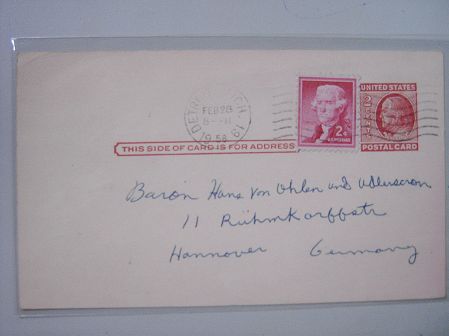 DETROIT, MICH. 19
FEB 28
1958
2¢
UNITED STATES
THIS SIDE OF CARD IS FOR ADDRESS
POSTAL CARD
Baron Hans von Ohlen und Adlerscron
11 Rühmkorffstr
Hannover Germany